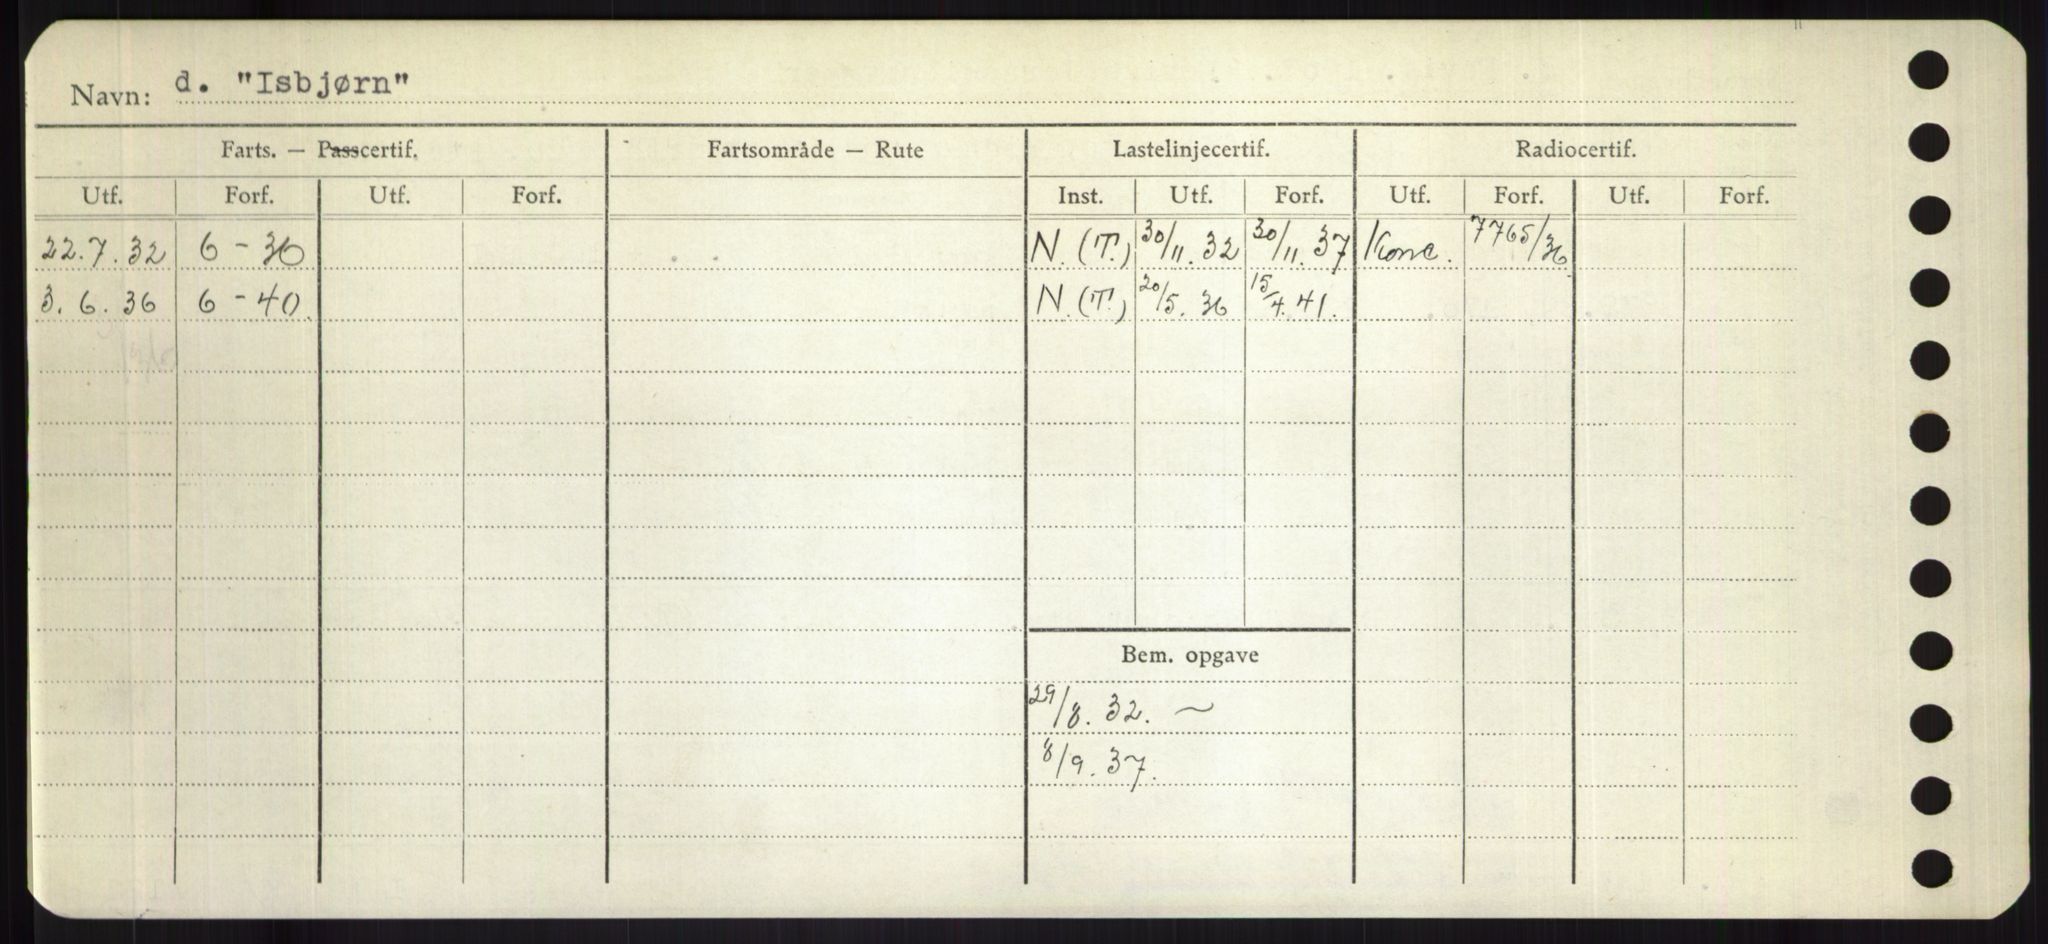 Navn: d. "Isbjørn"
Farts. — Passcertif. Fartsområde — Rute Lastelinjecertif. Radiocertif.
Utf. Forf. Utf. Forf. Inst. Utf. Forf. Utf. Forf. Utf. Forf.
22.7.32 6-36 N.(T.) 30/11.32 30/11.37 Konc. 7765/36
3.6.36 6-40 N.(T.) 20/5.36 15/4.41.
Bem. opgave
29/8.32. ~
8/9.37.